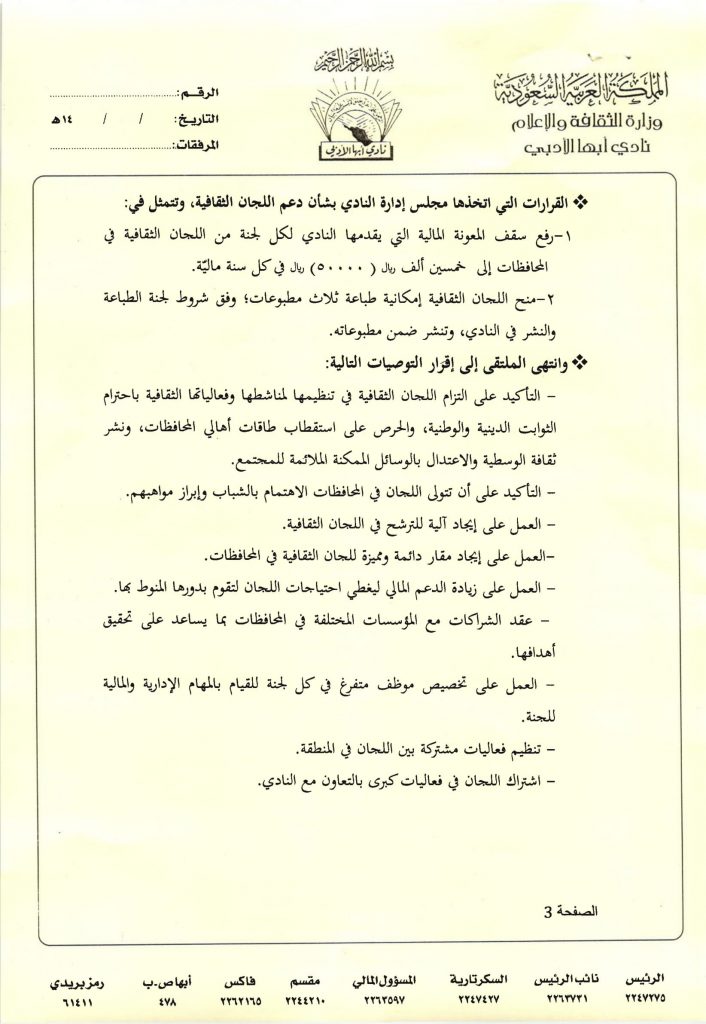 بسم الله الرحمن الرحيم
المملكة العربية السعودية
وزارة الثقافة والإعلام
نادي أبها الأدبي
نادي أبها الأدبي
الرقـم:
التاريخ: / / ١٤هـ
المرفقات:
❖ القرارات التي اتخذها مجلس إدارة النادي بشأن دعم اللجان الثقافية، وتتمثل في:
١-رفع سقف المعونة المالية التي يقدمها النادي لكل لجنة من اللجان الثقافية في
المحافظات إلى خمسين ألف ريال (٥٠٠٠٠) ريال في كل سنة ماليّة.
٢-منح اللجان الثقافية إمكانية طباعة ثلاث مطبوعات؛ وفق شروط لجنة الطباعة
والنشر في النادي، وتنشر ضمن مطبوعاته.
❖ وانتهى الملتقى إلى إقرار التوصيات التالية:
– التأكيد على التزام اللجان الثقافية في تنظيمها لمناشطها وفعالياتها الثقافية باحترام
الثوابت الدينية والوطنية، والحرص على استقطاب طاقات أهالي المحافظات، ونشر
ثقافة الوسطية والاعتدال بالوسائل الممكنة الملائمة للمجتمع.
– التأكيد على أن تتولى اللجان في المحافظات الاهتمام بالشباب وإبراز مواهبهم.
– العمل على إيجاد آلية للترشح في اللجان الثقافية.
–العمل على إيجاد مقار دائمة ومميزة للجان الثقافية في المحافظات.
– العمل على زيادة الدعم المالي ليغطي احتياجات اللجان لتقوم بدورها المنوط بها.
– عقد الشراكات مع المؤسسات المختلفة في المحافظات بما يساعد على تحقيق
أهدافها.
– العمل على تخصيص موظف متفرغ في كل لجنة للقيام بالمهام الإدارية والمالية
للجنة.
– تنظيم فعاليات مشتركة بين اللجان في المنطقة.
– اشتراك اللجان في فعاليات كبرى بالتعاون مع النادي.
الصفحة 3
الرئيس نائب الرئيس السكرتارية المسؤول المالي مقسم فاكس أبها ص.ب رمز بريدي
٢٢٤٧٢٧٥ ٢٢٦٣٧٣١ ٢٢٤٧٤٢٧ ٢٢٦٣٥٩٧ ٢٢٤٤٢١٠ ٢٢٦٢١٦٥ ٤٧٨ ٦١٤١١